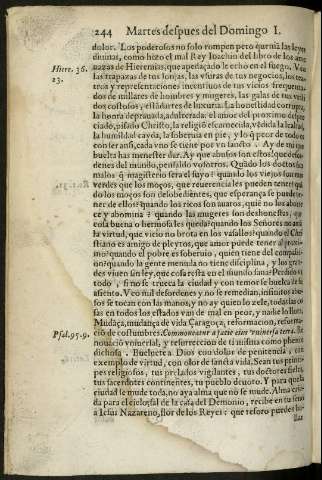 244 Martes despues del Domingo I.
dolor. Los poderosos no solo rompen pero quemã las leyes
diuinas, como hizo el mal Rey Ioachin del libro de los ame
Hiere. 36.
23.
nazas de Hieremias, que apedaçado le echó en el fuego. Veo
las trapazas de tus lonjas, las vsuras de tus negocios, los
tratos y representaciones incentiuos de tus vicios frequenta-
dos de millares de hombres y mugeres, las galas de tus vesti
dos costosos, estãdartes de luxuria. La honestidad corrupta,
la honra deprauada, adulterada: el amor del proximo despre
ciado, pisado Christo, la religiõ escarnecida, vẽdida la lealtad,
la humildad cayda, la soberuia en pie, y lo q̃ peor de todo es
con ser ansi, cada vno se tiene por vn sancto. Ay de mi que
buelta has menester dar. Ay que abusos son estos! que desor-
denes del mundo, pensaldo vosotros. Quãdo los doctos son
malos q̃ magisterio sera el suyo? quando los viejos son mas
verdes que los moços, que reuerencia les pueden tener? quã
do los moços son desobedientes, que esperança se puede te-
ner de ellos? quando los ricos son auaros, quiẽ no los aborre
ce y abomina? quando las mugeres son deshonestas, que
cosa buena o hermosa les queda? quando los Señores no amã
la virtud, que vicio no brota en los vasallos? quando el Chri
stiano es amigo de pleytos, que amor puede tener al proxi-
mo? quando el pobre es soberuio, quien tiene del compassi-
on? quando la gente menuda no tiene disciplina, y los gran-
des viuen sin ley, que cosa resta en el mundo sana? Perdido es
todo, si no se trueca la ciudad y con temor se buelue de su
assiento. Veo mil desordenes y no se remedian, infinitos abu-
sos se tocan con las manos, y no ay quien lo zele, todas las co
sas en todos los estados van de mal en peor, y nadie lo llora.
Mudãça, mudança de vida Çaragoça, reformacion, reforma-
Psal. 95. 9.
ciõ de costumbres. Commoueatur a facie eius vniuersa terra. Re
nouaciõ vniuersal, y resurreccion de ti misma como phenix
dichosa. Buelue te a Dios con dolor de penitencia, con
exemplo de virtud, con olor de sancta vida. Sean tus princi-
pes religiosos, tus prelados vigilantes, tus doctores fieles,
tus sacerdotes continentes, tu pueblo deuoto. Y para que la
ciudad se mude toda, no aya alma que no se mude. Alma cria
da para el cielo, sal de la casa del Demonio, recibe en tu seno
a Iesus Nazareno, flor de los Reyes: que tesoro puedes ha-
llar